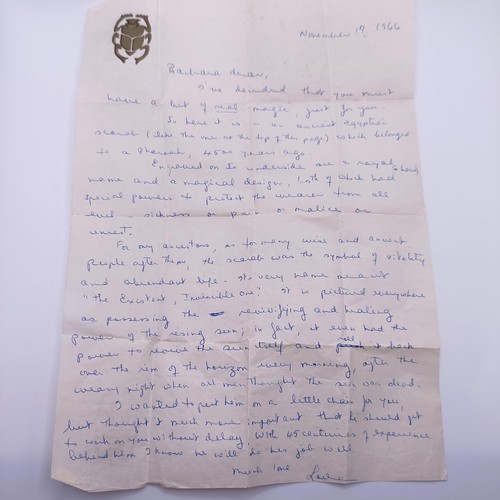 November 17, 1966
Barbara dear,
I've decided that you must
have a bit of real magic, just for you.
So here it is — an ancient Egyptian
scarab (like the one at the top of this page) which belonged
to a Pharaoh, 4500 years ago.
Engraved on its underside are a royal
name and a magical design, both of which had
special powers to protect the wearer from all
evil - sickness or pain or malice or
unrest.
For my ancestors, as for many wise and ancient
people after them, the scarab was the symbol of vitality
and abundant life. Its very name meant
"the Existent, Invincible one." It is pictured everywhere
as possessing the revivifying and healing
power of the rising sun; in fact, it even had the
power to revive the sun itself and roll it back
over the rim of the horizon every morning, after the
weary night when all men thought the sun was dead.
I wanted to put him on a little chain for you,
but thought it much more important that he should get
to work on you without delay. With 45 centuries of experience
behind him I know he will do his job well
Much love